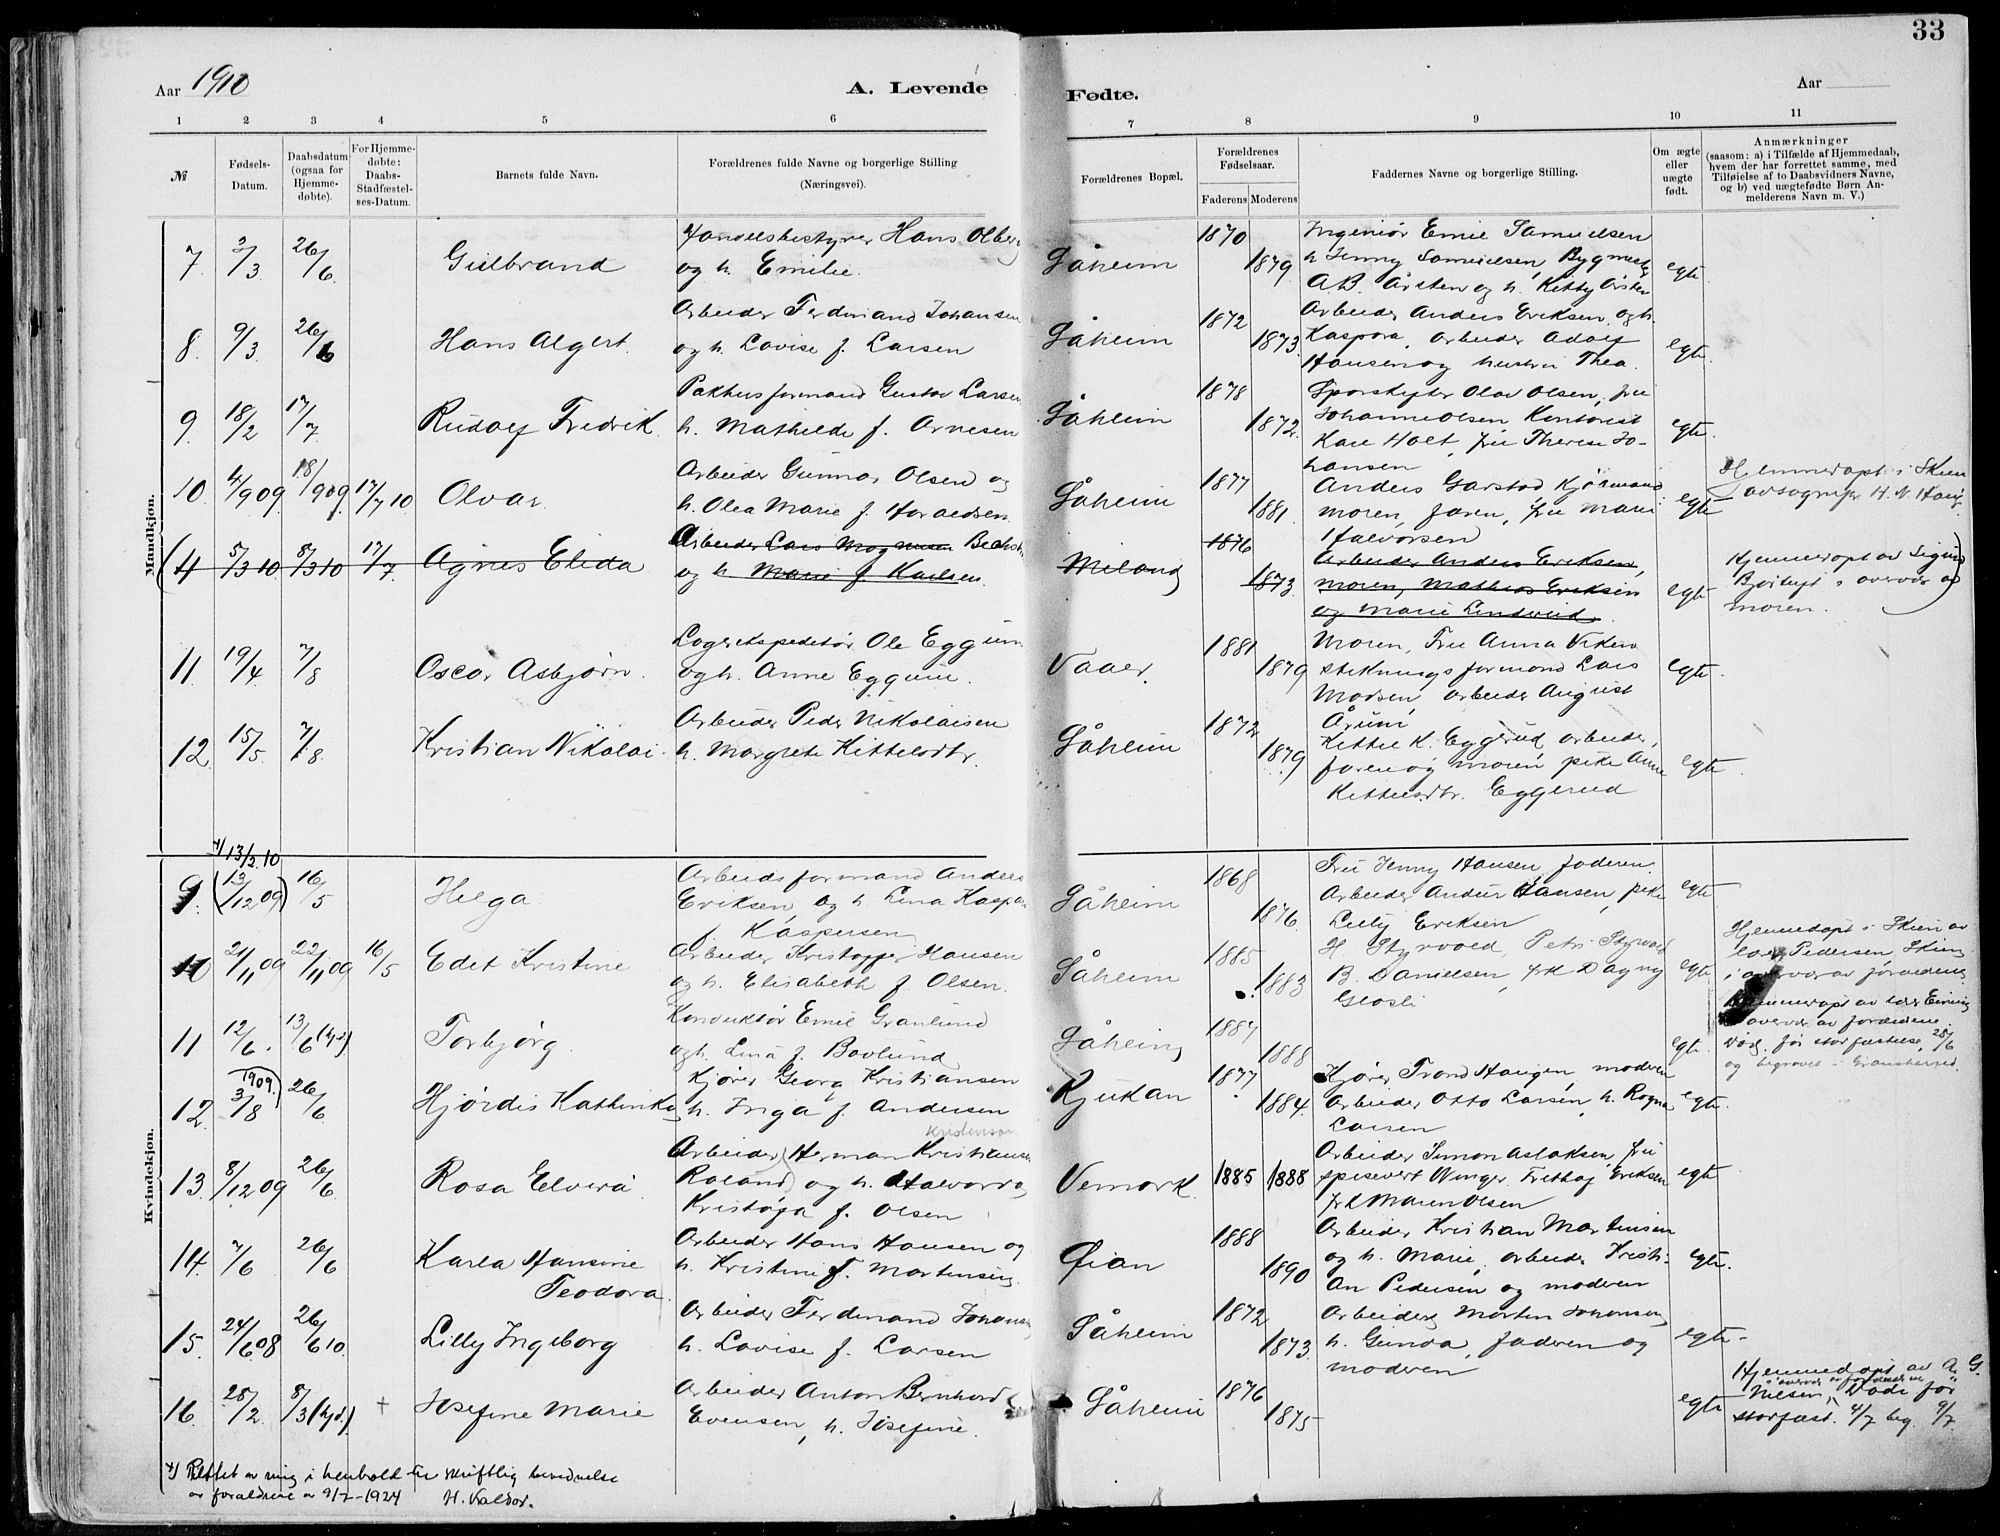 33
Aar 1910
A. Levende
Fødte.
Aar
1 2 3 4 5 6 7 8 9 10 11
№
Fødsels-
Datum.
Daabsdatum
(ogsaa for
Hjemme-
døbte).
For Hjemme-
døbte:
Daabs-
Stadfæstel-
ses-Datum.
Barnets fulde Navn.
Forældrenes fulde Navne og borgerlige Stilling
(Næringsvei).
Forældrenes Bopæl.
Forældrenes
Fødselsaar.
Faderens Moderens
Faddernes Navne og borgerlige Stilling.
Om ægte
eller
uægte
født.
Anmærkninger
(saasom: a) i Tilfælde af Hjemmedaab,
hvem der har forrettet samme, med
Tilføielse af to Daabsvidners Navne,
og b) ved uægtefødte Børn An-
melderens Navn m. V.)
Mandkjøn.
7. 3/3. 26/6. Gulbrand
Handelsbestyrer Hans Olberg
og h. Emilie.
Såheim 1870 1879
Ingeniør Emil Samuelsen
h. Jenny Samuelsen, Bygmester
A.B. Årsten og h. Kitty Årsten
egte
8. 9/3. 26/6 Hans Algert.
Arbeider Ferdinand Johansen
og h. Lovise f. Larsen
Såheim 1872 1873.
Arbeider Anders Eriksen og h.
Kaspora, arbeider Adolf
Hansen og hustru Thea.
egte
9. 18/2 17/7 Rudolf Fredrik.
Pakhusformand Gustav Larsen
h. Mathilde f. Arnesen
Såheim 1878 1872.
Sporskifter Olav Olsen, fru
Johanne Olsen Kontorist
Karl Holt, fru Therese Jo-
hansen
egte.
10. 4/9 09 18/9 09. 17/7 10 Olvar
Arbeider Gunnar Olsen og
h. Olea Marie f. Haraldsen.
Såheim 1877 1881.
Anders Garstad Kjørmand
moren, faren, fru Marie
Halvorsen
egte
Hjemmedøpt i Skien
av sogneprest H. N. Hauge
(4 5/3 10 8/3 10 17/7. Agnes Elida
Arbeider Lars Magnusen Bechst
og h. Marie f. Karlsen.
Miland 1876 1873.
Arbeider Anders Eriksen,
moren, Mathias Eriksen
og Marie Lindveid.
egte
Hjemmedøpt av Sigrid
i overvær av
moren.)
11. 19/4. 7/8 Oscar Asbjørn.
Lagerekspeditør Ole Eggum
og h. Anne Eggum.
Vaaer. 1881 1879
Moren, Fru Anna Viken
stikningsformand Lars
Madsen, arbeider August
Årum
egte.
12. 15/5. 7/8 Kristian Nikolai.
Arbeider Peder Nikolaisen
h. Margrete Kittelsdtr.
Såheim 1872 1879
Kittel K. Eggerud arbeider,
faren og moren, pike Anne
Kittelsdtr. Eggerud
egte.
Kvindekjøn.
x) 13/2. 10
9. (13/12 09) 16/5 Helga
Arbeidsformand Anders
Eriksen, og h. Lina Kaspara
f. Kaspersen
Såheim 1868 1876.
Fru Jenny Hansen, faderen.
Arbeider Andur Hansen, pike
Lully Eriksen
egte
10 21/11 09 22/11 09 16/5 Edet Kristine
Arbeider Kristoffer Hansen
og h. Elisabeth f. Olsen.
Såheim 1885 1883
H. Styrvold, Petr. Styrvold
B. Danielsen, frk Dagny
Gløsli
egte
Hjemmedøpt i Skien av
Pedersen, Skien
i overvær av forældrene
11 12/6. 13/6 (hjd) Torbjørg.
Konduktør Emil Granlund
og h. Lina f. Bovlund
Såheim 1887 1888
egte.
Hjemmedøpt av lær
i overvær av forældrene.
Død før stadfæstelse, 25/6
og begravet i Gransherred
12. (1909. 3/8) 26/6 Hjørdis Kathinka
Kjører Georg Kristiansen
h. Inga f. Andersen
Rjukan 1877 1884.
Kjører Trond Haugen, moderen
Arbeider Otto Larsen, h. Ragna
Larsen
egte.
13. 8/12 09 26/6 Rosa Elvera
Kristensen
Arbeider (Herman Kristiansen
Roland) og h. Halvorra
Kristofa f. Olsen
Vemork. 1885 1888
Arbeider Simon Aslaksen, fru
spisevert Winger, Frithof Eriksen
frk Maren Olsen
egte
14. 7/6 26/6 Karla Hansine
Teodora.
Arbeider Hans Hansen og
h. Kristine f. Martensen.
Øian 1888 1890
Arbeider Kristian Martinsen
og h. Marie, arbeider Kristi-
an Pedersen og moderen
egte.
15. 24/6 08 26/6 10. Lilly Ingeborg
Arbeider Ferdinand Johansen
h. Lovise f. Larsen
Såheim 1872 1873.
Arbeider Morten Johansen,
h. Gunda, faderen og
moderen
egte.
16. 28/2. 8/3 (hjd.) + Josefine Marie
Arbeider Anton Bernhard
Evensen, h. Josefine.
Såheim 1876 1875
egte
Hjemmedøpt av A. G.
i overvær av forældrene
Nilsen, Døde før
stadfæst. 4/7 beg. 9/7
x) Rettet av mig i henhold til skriftlig bevidnelse
av forældrene av 9/7-1924 H. Kaldor.